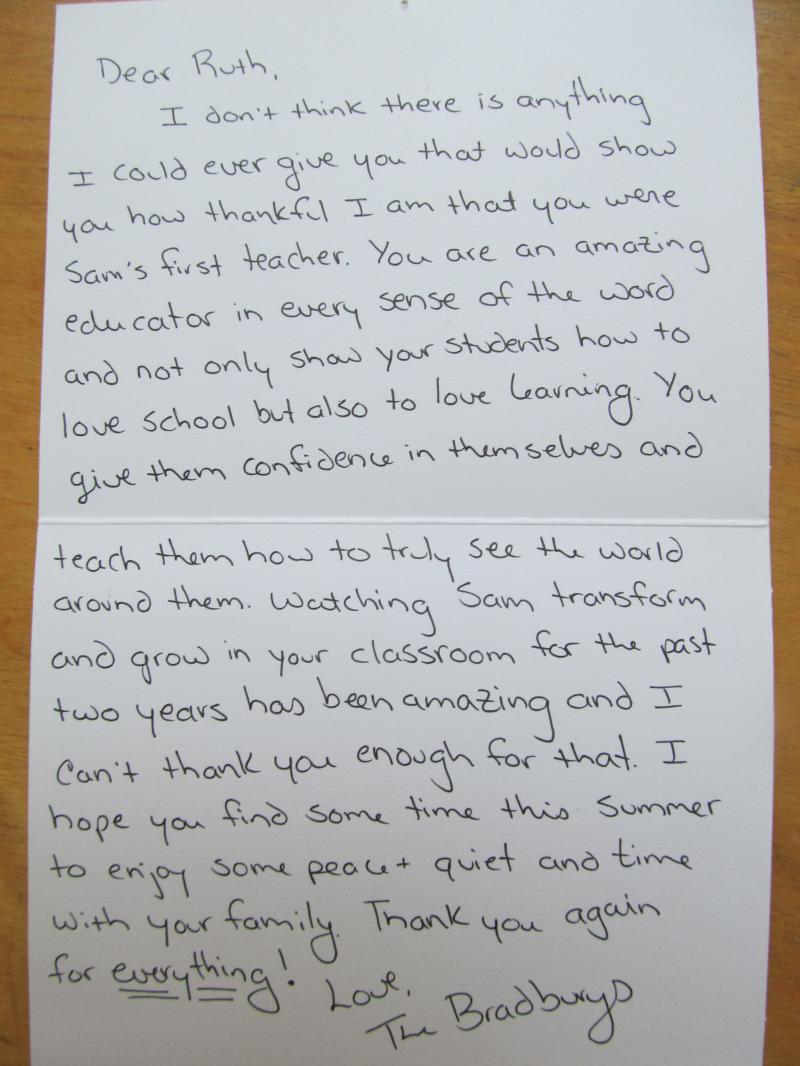 Dear Ruth,
I don't think there is anything
I could ever give you that would show
you how thankful I am that you were
Sam's first teacher. You are an amazing
educator in every sense of the word
and not only show your students how to
love school but also to love learning. You
give them confidence in themselves and
teach them how to truly see the world
around them. Watching Sam transform
and grow in your classroom for the past
two years has been amazing and I
can't thank you enough for that. I
hope you find some time this summer
to enjoy some peace + quiet and time
with your family. Thank you again
for everything!
Love,
The Bradburys